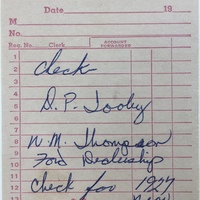 Date 19
M
No.
Reg. No. Clerk ACCOUNT FORWARDED
1
2 check
3
4
5 D. P. Tooley
6
7
8 W. M. Thompson
9
10 Ford Dealership
11
12 Check for 1927
13